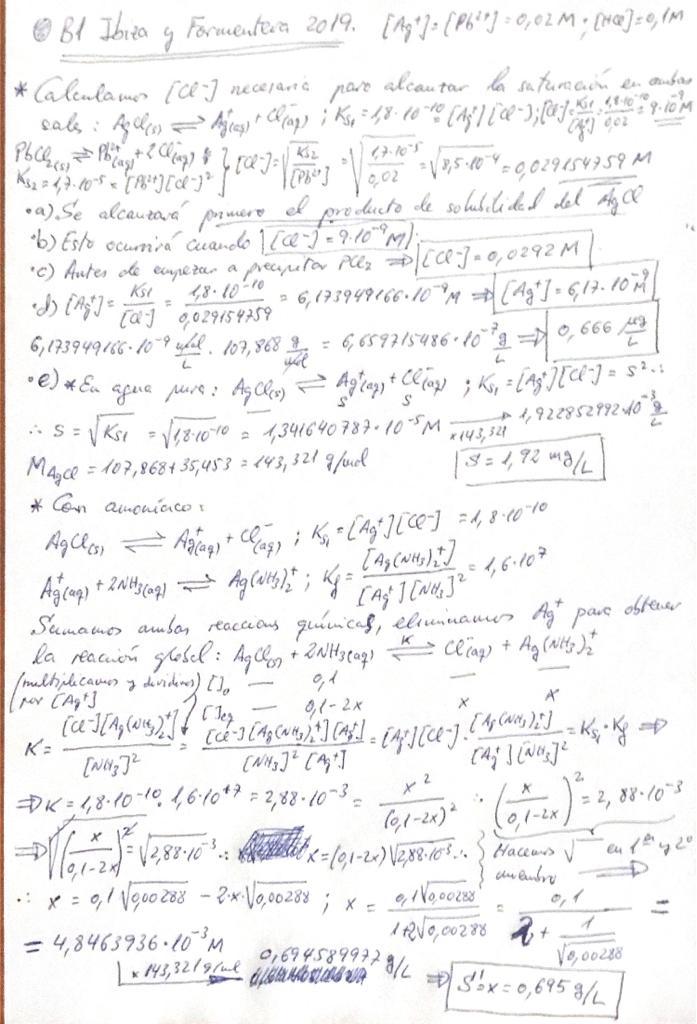 B1 Ibiza y Formentera 2019. [Ag⁺]=[Pb²⁺]=0,02M ; [HCl]=0,1M
* Calculamos [Cl⁻] necesaria para alcanzar la saturación en ambas
sales: AgCl(s) ⇌ Ag⁺(aq) + Cl⁻(aq) ; Ks₁=1,8·10⁻¹⁰=[Ag⁺][Cl⁻]; [Cl⁻]=Ks₁/[Ag⁺]=1,8·10⁻¹⁰/0,02=9·10⁻⁹M
PbCl₂(s) ⇌ Pb²⁺(aq)+2Cl⁻(aq) } [Cl⁻]=√(Ks₂/[Pb²⁺]) = √(1,7·10⁻⁵/0,02) = √(8,5·10⁻⁴) = 0,029154759 M
Ks₂=1,7·10⁻⁵=[Pb²⁺][Cl⁻]²
·a) Se alcanzará primero el producto de solubilidad del AgCl
·b) Esto ocurrirá cuando [Cl⁻]=9·10⁻⁹M
·c) Antes de empezar a precipitar PCl₂ ⇒ [Cl⁻]=0,0292M
·d) [Ag⁺]=Ks₁/[Cl⁻] = 1,8·10⁻¹⁰/0,029154759 = 6,173949166·10⁻⁹M ⇒ [Ag⁺]=6,17·10⁻⁹M
6,173949166·10⁻⁹ mol/L · 107,868 g/mol = 6,659715486·10⁻⁷ g/L ⇒ 0,666 µg/L
·e) * En agua pura: AgCl(s) ⇌ Ag⁺(aq)+Cl⁻(aq) ; Ks₁=[Ag⁺][Cl⁻]=S² ∴
— S S
∴ S=√Ks₁ = √(1,8·10⁻¹⁰) = 1,341640787·10⁻⁵M ×143,321 → 1,922852992·10⁻³ g/L
M AgCl = 107,868+35,453=143,321 g/mol S=1,92 mg/L
* Con amoníaco:
AgCl(s) ⇌ Ag⁺(aq) + Cl⁻(aq) ; Ks₁=[Ag⁺][Cl⁻] = 1,8·10⁻¹⁰
Ag⁺(aq) + 2NH₃(aq) ⇌ Ag(NH₃)₂⁺ ; Kf = [Ag(NH₃)₂⁺]/[Ag⁺][NH₃]² = 1,6·10⁷
Sumamos ambas reaccions químicas, eliminamos Ag⁺ para obtener
la reacción global: AgCl(s) + 2NH₃(aq) ⇌ K Cl⁻(aq) + Ag(NH₃)₂⁺
(multiplicamos y dividimos por [Ag⁺]) [ ]₀ — 0,1 — —
[ ]eq — 0,1-2x x x
K = [Cl⁻][Ag(NH₃)₂⁺]/[NH₃]² = [Cl⁻][Ag(NH₃)₂⁺][Ag⁺]/[NH₃]²[Ag⁺] = [Ag⁺][Cl⁻]·[Ag(NH₃)₂⁺]/[Ag⁺][NH₃]² = Ks₁·Kf ⇒
⇒ K = 1,8·10⁻¹⁰·1,6·10⁺⁷ = 2,88·10⁻³ = x²/(0,1-2x)² ∴ (x/(0,1-2x))² = 2,88·10⁻³
⇒ √(x/(0,1-2x))² = √(2,88·10⁻³) ∴ x=(0,1-2x)√(2,88·10⁻³) ∴ { Hacemos √ en 1er y 2º miembro ⇒
∴ x = 0,1√0,00288 - 2·x·√0,00288 ; x = 0,1√0,00288/(1+2√0,00288) = 0,1/(2+1/√0,00288) =
= 4,8463936·10⁻³M
×143,321g/mol → 0,694589977 g/L ⇒ S'=x=0,695 g/L